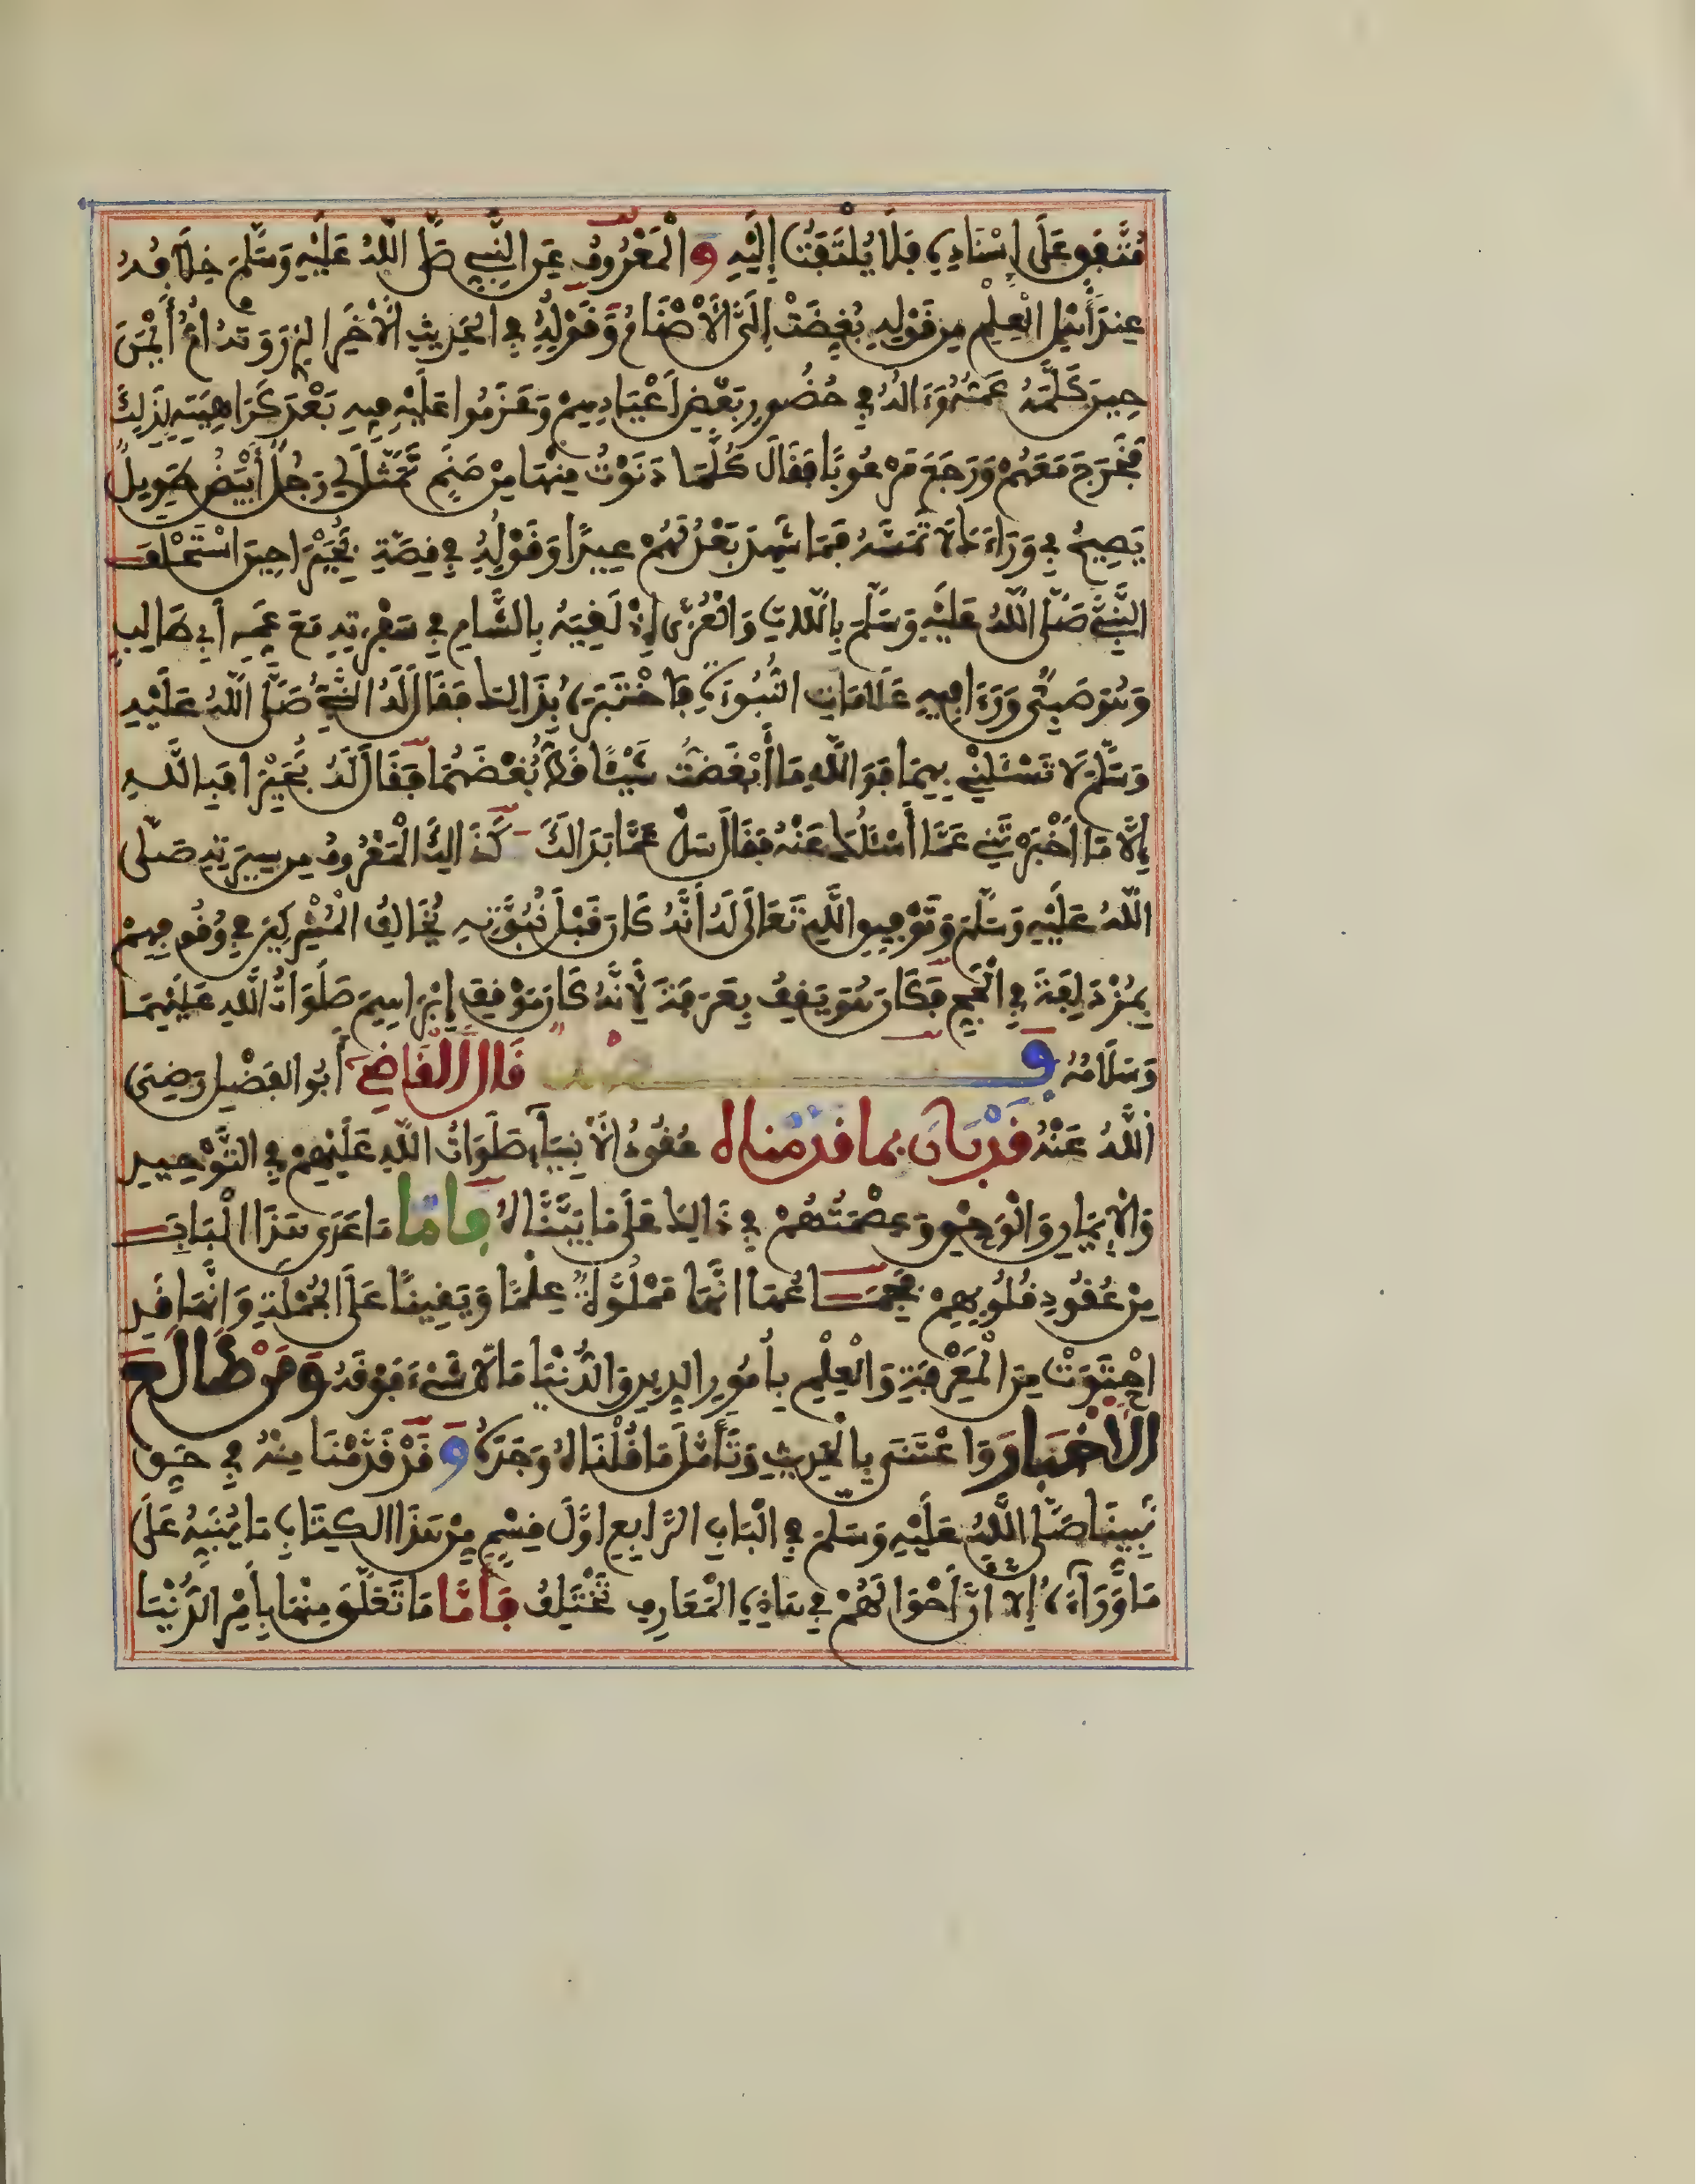 مُتَّفَقٍ عَلَى إِسْنَادِهِ فَلَا يُلْتَفَتُ إِلَيْهِ وَالْمَعْرُوفُ عَنِ النَّبِيِّ صَلَّى اللَّهُ عَلَيْهِ وَسَلَّمَ خِلَافُهُ
عِنْدَ أَهْلِ الْعِلْمِ مِنْ قَوْلِهِ بُغِّضَتْ إِلَيَّ الْأَصْنَامُ وَقَوْلِهِ فِي الْحَدِيثِ الْآخَرِ الَّذِي رَوَتْهُ أُمُّ أَيْمَنَ
حِينَ كَلَّمَهُ عَمُّهُ وَءَالُهُ فِي حُضُورِ بَعْضِ أَعْيَادِهِمْ وَعَزَمُوا عَلَيْهِ فِيهِ بَعْدَ كَرَاهِيَتِهِ لِذَلِكَ
فَخَرَجَ مَعَهُمْ وَرَجَعَ مَرْعُوبًا فَقَالَ كُلَّمَا دَنَوْتُ مِنْهَا مِنْ صَنَمٍ تَمَثَّلَ لِي رَجُلٌ أَبْيَضُ طَوِيلٌ
يَصِيحُ بِي وَرَاءَكَ لَا تَمَسَّهُ فَمَا شَهِدَ بَعْدُ لَهُمْ عِيدًا وَقَوْلِهِ فِي قِصَّةِ بَحِيْرَا حِينَ اسْتَحْلَفَ
النَّبِيَّ صَلَّى اللَّهُ عَلَيْهِ وَسَلَّمَ بِاللَّاتِ وَالْعُزَّى إِذْ لَقِيَهُ بِالشَّامِ فِي سَفْرَتِهِ مَعَ عَمِّهِ أَبِي طَالِبٍ
وَهُوَ صَبِيٌّ وَرَءَا فِيهِ عَلَامَاتِ النُّبُوَّةِ فَاخْتَبَرَهُ بِذَالِكَ فَقَالَ لَهُ النَّبِيُّ صَلَّى اللَّهُ عَلَيْهِ
وَسَلَّمَ لَا تَسْئَلْنِي بِهِمَا فَوَاللَّهِ مَا أَبْغَضْتُ شَيْئًا قَطُّ بُغْضَهُمَا فَقَالَ لَهُ بَحِيْرَا فَبِاللَّهِ
إِلَّا مَا أَخْبَرْتَنِي عَمَّا أَسْئَلُكَ عَنْهُ فَقَالَ سَلْ عَمَّا بَدَا لَكَ كَذَالِكَ الْمَعْرُوفُ مِنْ سِيرَتِهِ صَلَّى
اللَّهُ عَلَيْهِ وَسَلَّمَ وَتَوْفِيقِ اللَّهِ تَعَالَى لَهُ أَنَّهُ كَانَ قَبْلَ نُبُوَّتِهِ يُخَالِفُ الْمُشْرِكِينَ فِي وُقُوفِهِمْ
بِمُزْدَلِفَةَ فِي الْحَجِّ فَكَانَ هُوَ يَقِفُ بِعَرَفَةَ لِأَنَّهُ كَانَ مَوْقِفَ إِبْرَاهِيمَ صَلَوَاتُ اللَّهِ عَلَيْهِمَا
وَسَلَامُهُ فَصْلٌ قَالَ الْقَاضِي أَبُو الْفَضْلِ رَضِيَ
اللَّهُ عَنْهُ قَدْ بَانَ بِمَا قَدَّمْنَاهُ عُقُودُ الْأَنْبِيَاءِ صَلَوَاتُ اللَّهِ عَلَيْهِمْ فِي التَّوْحِيدِ
وَالْإِيمَانِ وَالْوَحْيِ وَعِصْمَتُهُمْ فِي ذَالِكَ عَلَى مَا بَيَّنَّاهُ فَأَمَّا مَا عَدَى هَذَا الْبَابَ
مِنْ عُقُودِ قُلُوبِهِمْ فَجِمَاعُهَا أَنَّهَا مَمْلُوَّةٌ عِلْمًا وَيَقِينًا عَلَى الْجُمْلَةِ وَأَنَّهَا قَدِ
احْتَوَتْ مِنَ الْمَعْرِفَةِ وَالْعِلْمِ بِأُمُورِ الدِّينِ وَالدُّنْيَا مَا لَا شَيْءَ فَوْقَهُ وَمَنْ طَالَعَ
الْأَخْبَارَ وَاعْتَنَى بِالْحَدِيثِ وَتَأَمَّلَ مَا قُلْنَاهُ وَجَدَهُ وَقَدْ قَدَّمْنَا مِنْهُ فِي حَقِّ
نَبِيِّنَا صَلَّى اللَّهُ عَلَيْهِ وَسَلَّمَ فِي الْبَابِ الرَّابِعِ أَوَّلَ قِسْمٍ مِنْ هَذَا الْكِتَابِ مَا يُنَبِّهُ عَلَى
مَا وَرَاءَهُ إِلَّا أَنَّ أَحْوَالَهُمْ فِي هَاذِهِ الْمَعَارِفِ تَخْتَلِفُ فَأَمَّا مَا تَعَلَّقَ مِنْهَا بِأَمْرِ الدُّنْيَا